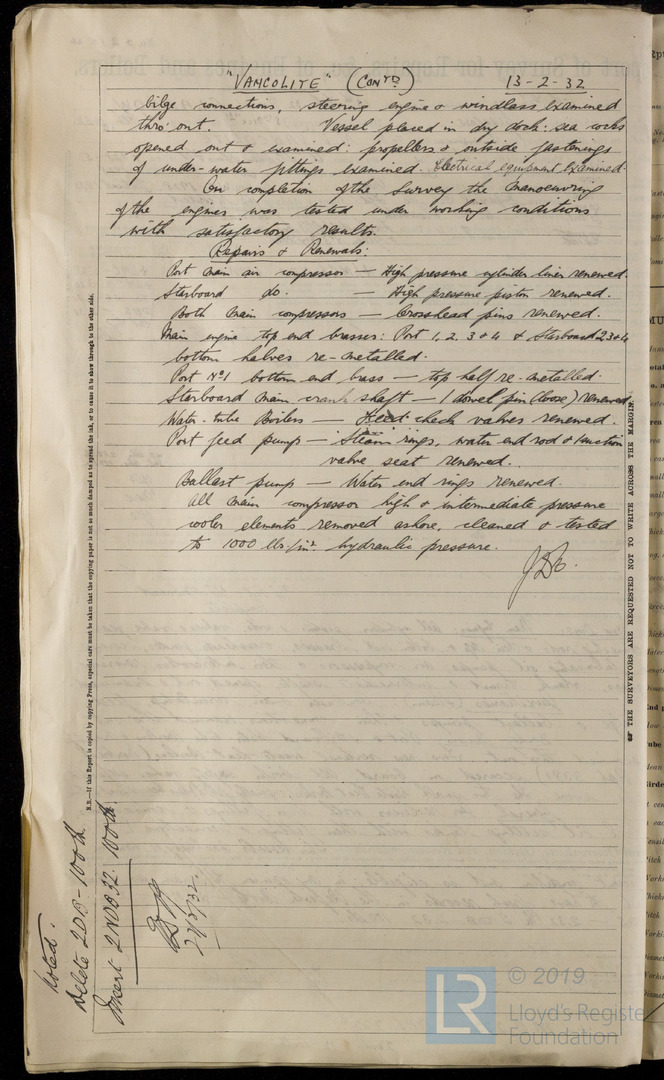 "VANCOLITE" (CONTD) 13-2-32
bilge connections, steering engine & windlass examined
thro' out. Vessel placed in dry dock: sea cocks
opened out & examined: propellers & outside fastenings
of under-water fittings examined. Electrical equipment examined.
On completion of the survey the manoeuvring
of the engines was tested under working conditions
with satisfactory results.
Repairs & Renewals:
Port main air compressor — High pressure cylinder liner renewed.
Starboard do. — High pressure piston renewed.
Both main compressors — Crosshead pins renewed.
Main engine top end brasses: Port 1, 2, 3 & 4 & Starboard 2 3 & 4
bottom halves re-metalled.
Port No 1 bottom end brass — top half re-metalled.
Starboard main crank shaft — 1 dowel pin (loose) renewed
Water-tube Boilers — Feed check valves renewed.
Port feed pump — Steam rings, water end rod & suction
valve seat renewed.
Ballast pump — Water end rings renewed.
All main compressor high & intermediate pressure
cooler elements removed ashore, cleaned & tested
to 1000 lbs/in². hydraulic pressure.
N.B.—If this Report is copied by copying Press, especial care must be taken that the copying paper is not so much damped as to spread the ink, or to cause it to show through to the other side.
THE SURVEYORS ARE REQUESTED NOT TO WRITE ACROSS THE MARGIN.
Noted.
Delete 2DB-100 lb
Insert 2NDB32. 100 lb
© 2019
Lloyd's Registe
Foundation
LR